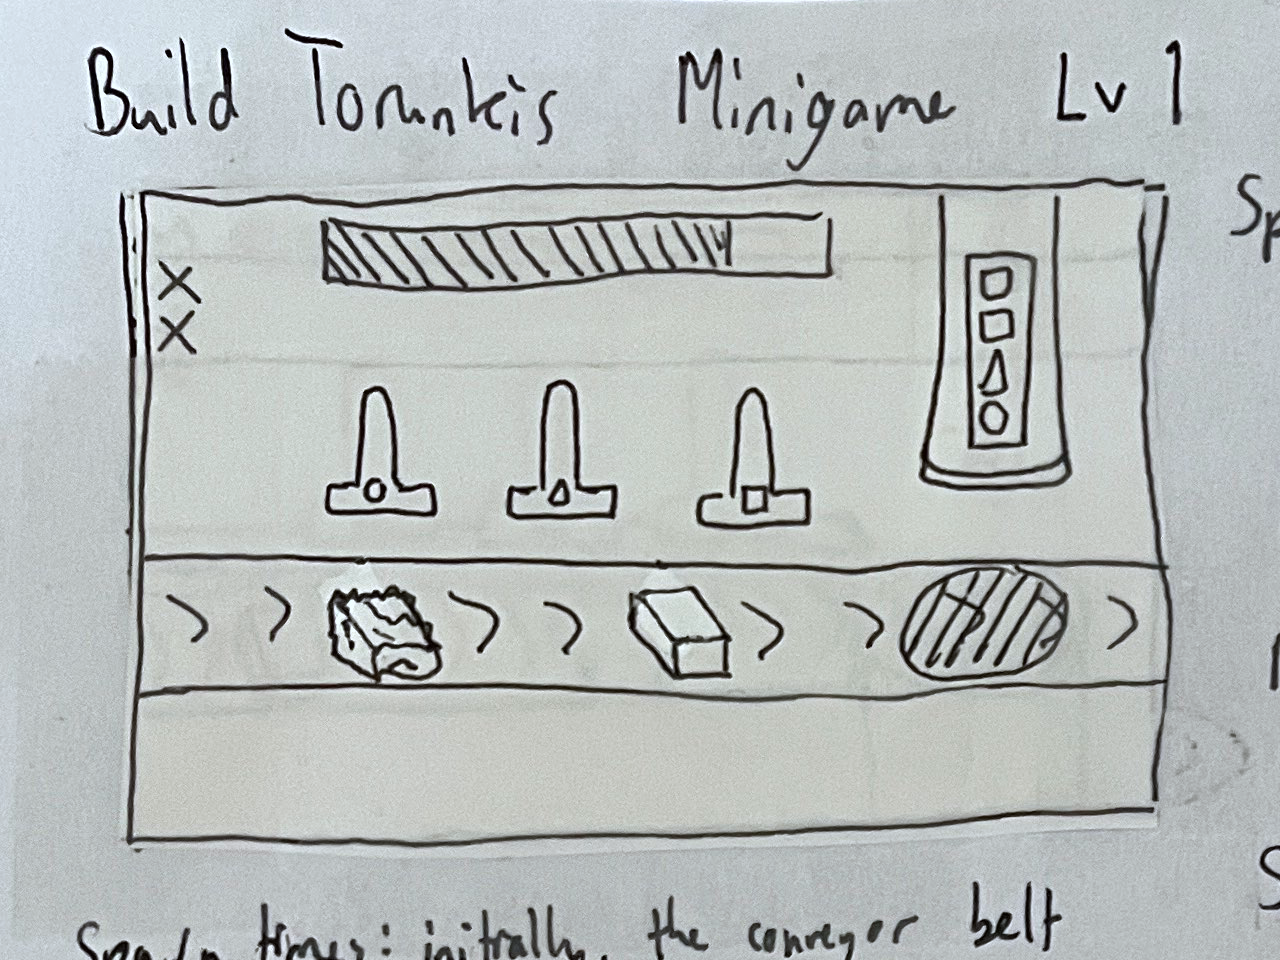 Build Torunkis Minigame Lv 1
Sp
X
X
S
Spawn times: initially, the conveyor belt